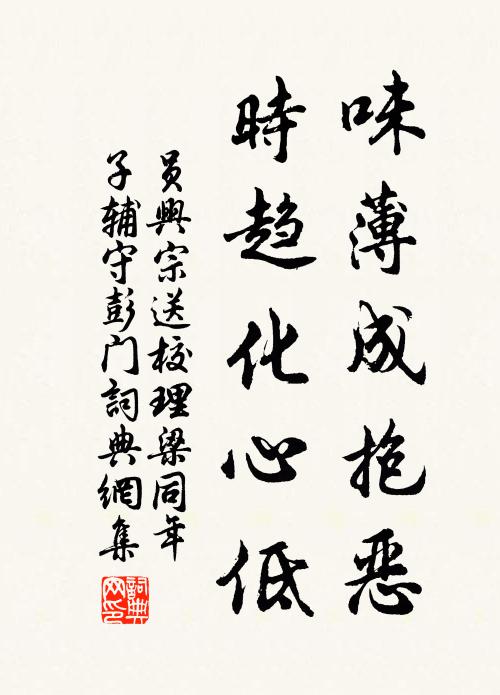 味薄成抱恶
時趋化心低
员興宗送校理梁同年
子辅守彭门詞典網集
詞典網印